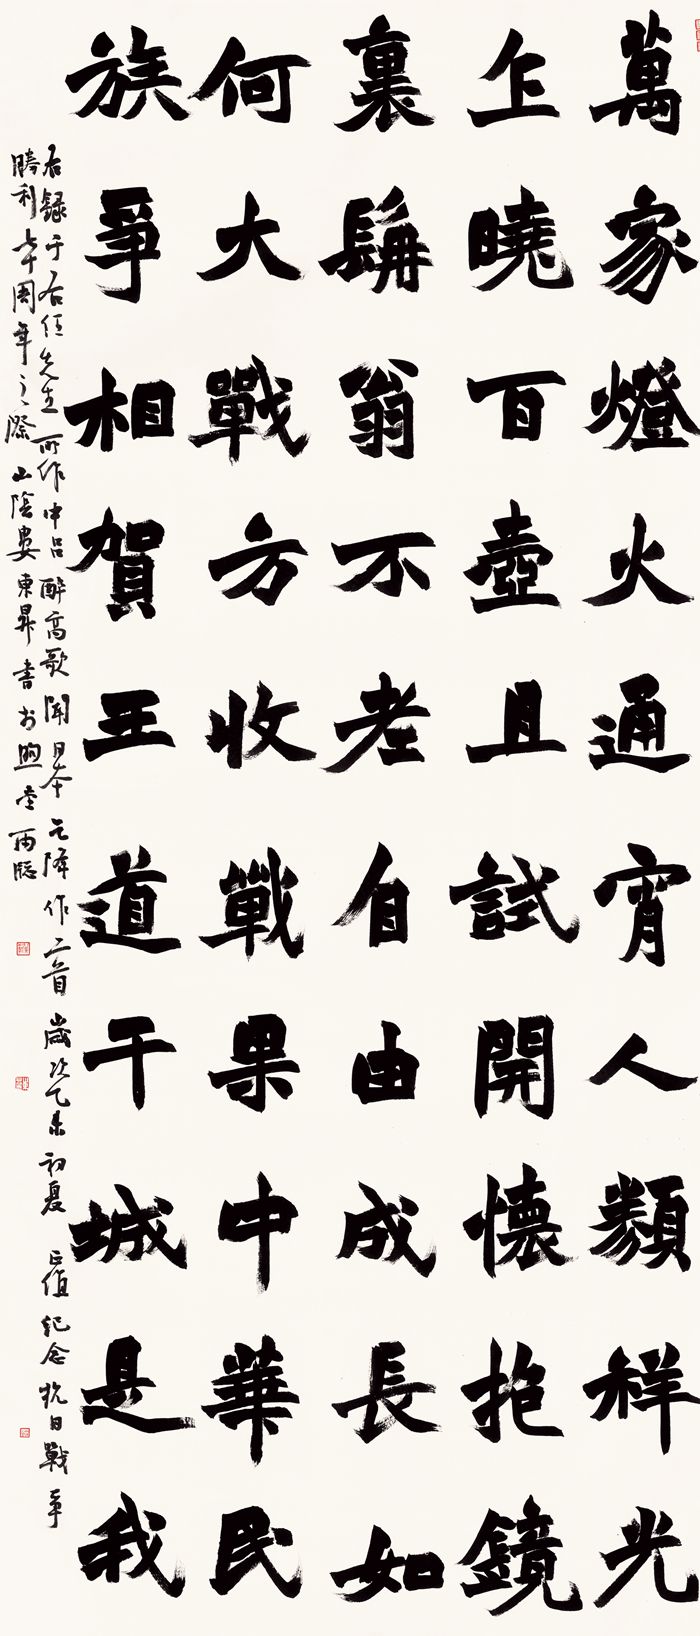 萬家燈火通宵人類祥光
乍曉百壺且試開懷抱鏡
裏髯翁不老自由成長如
何大戰方收戰果中華民
族爭相賀王道干城是我
右録于右任先生所作中吕醉高歌聞日本乞降作二首歲次乙未初夏正值紀念抗日戰爭
勝利七十周年之際山陰婁東昇書於